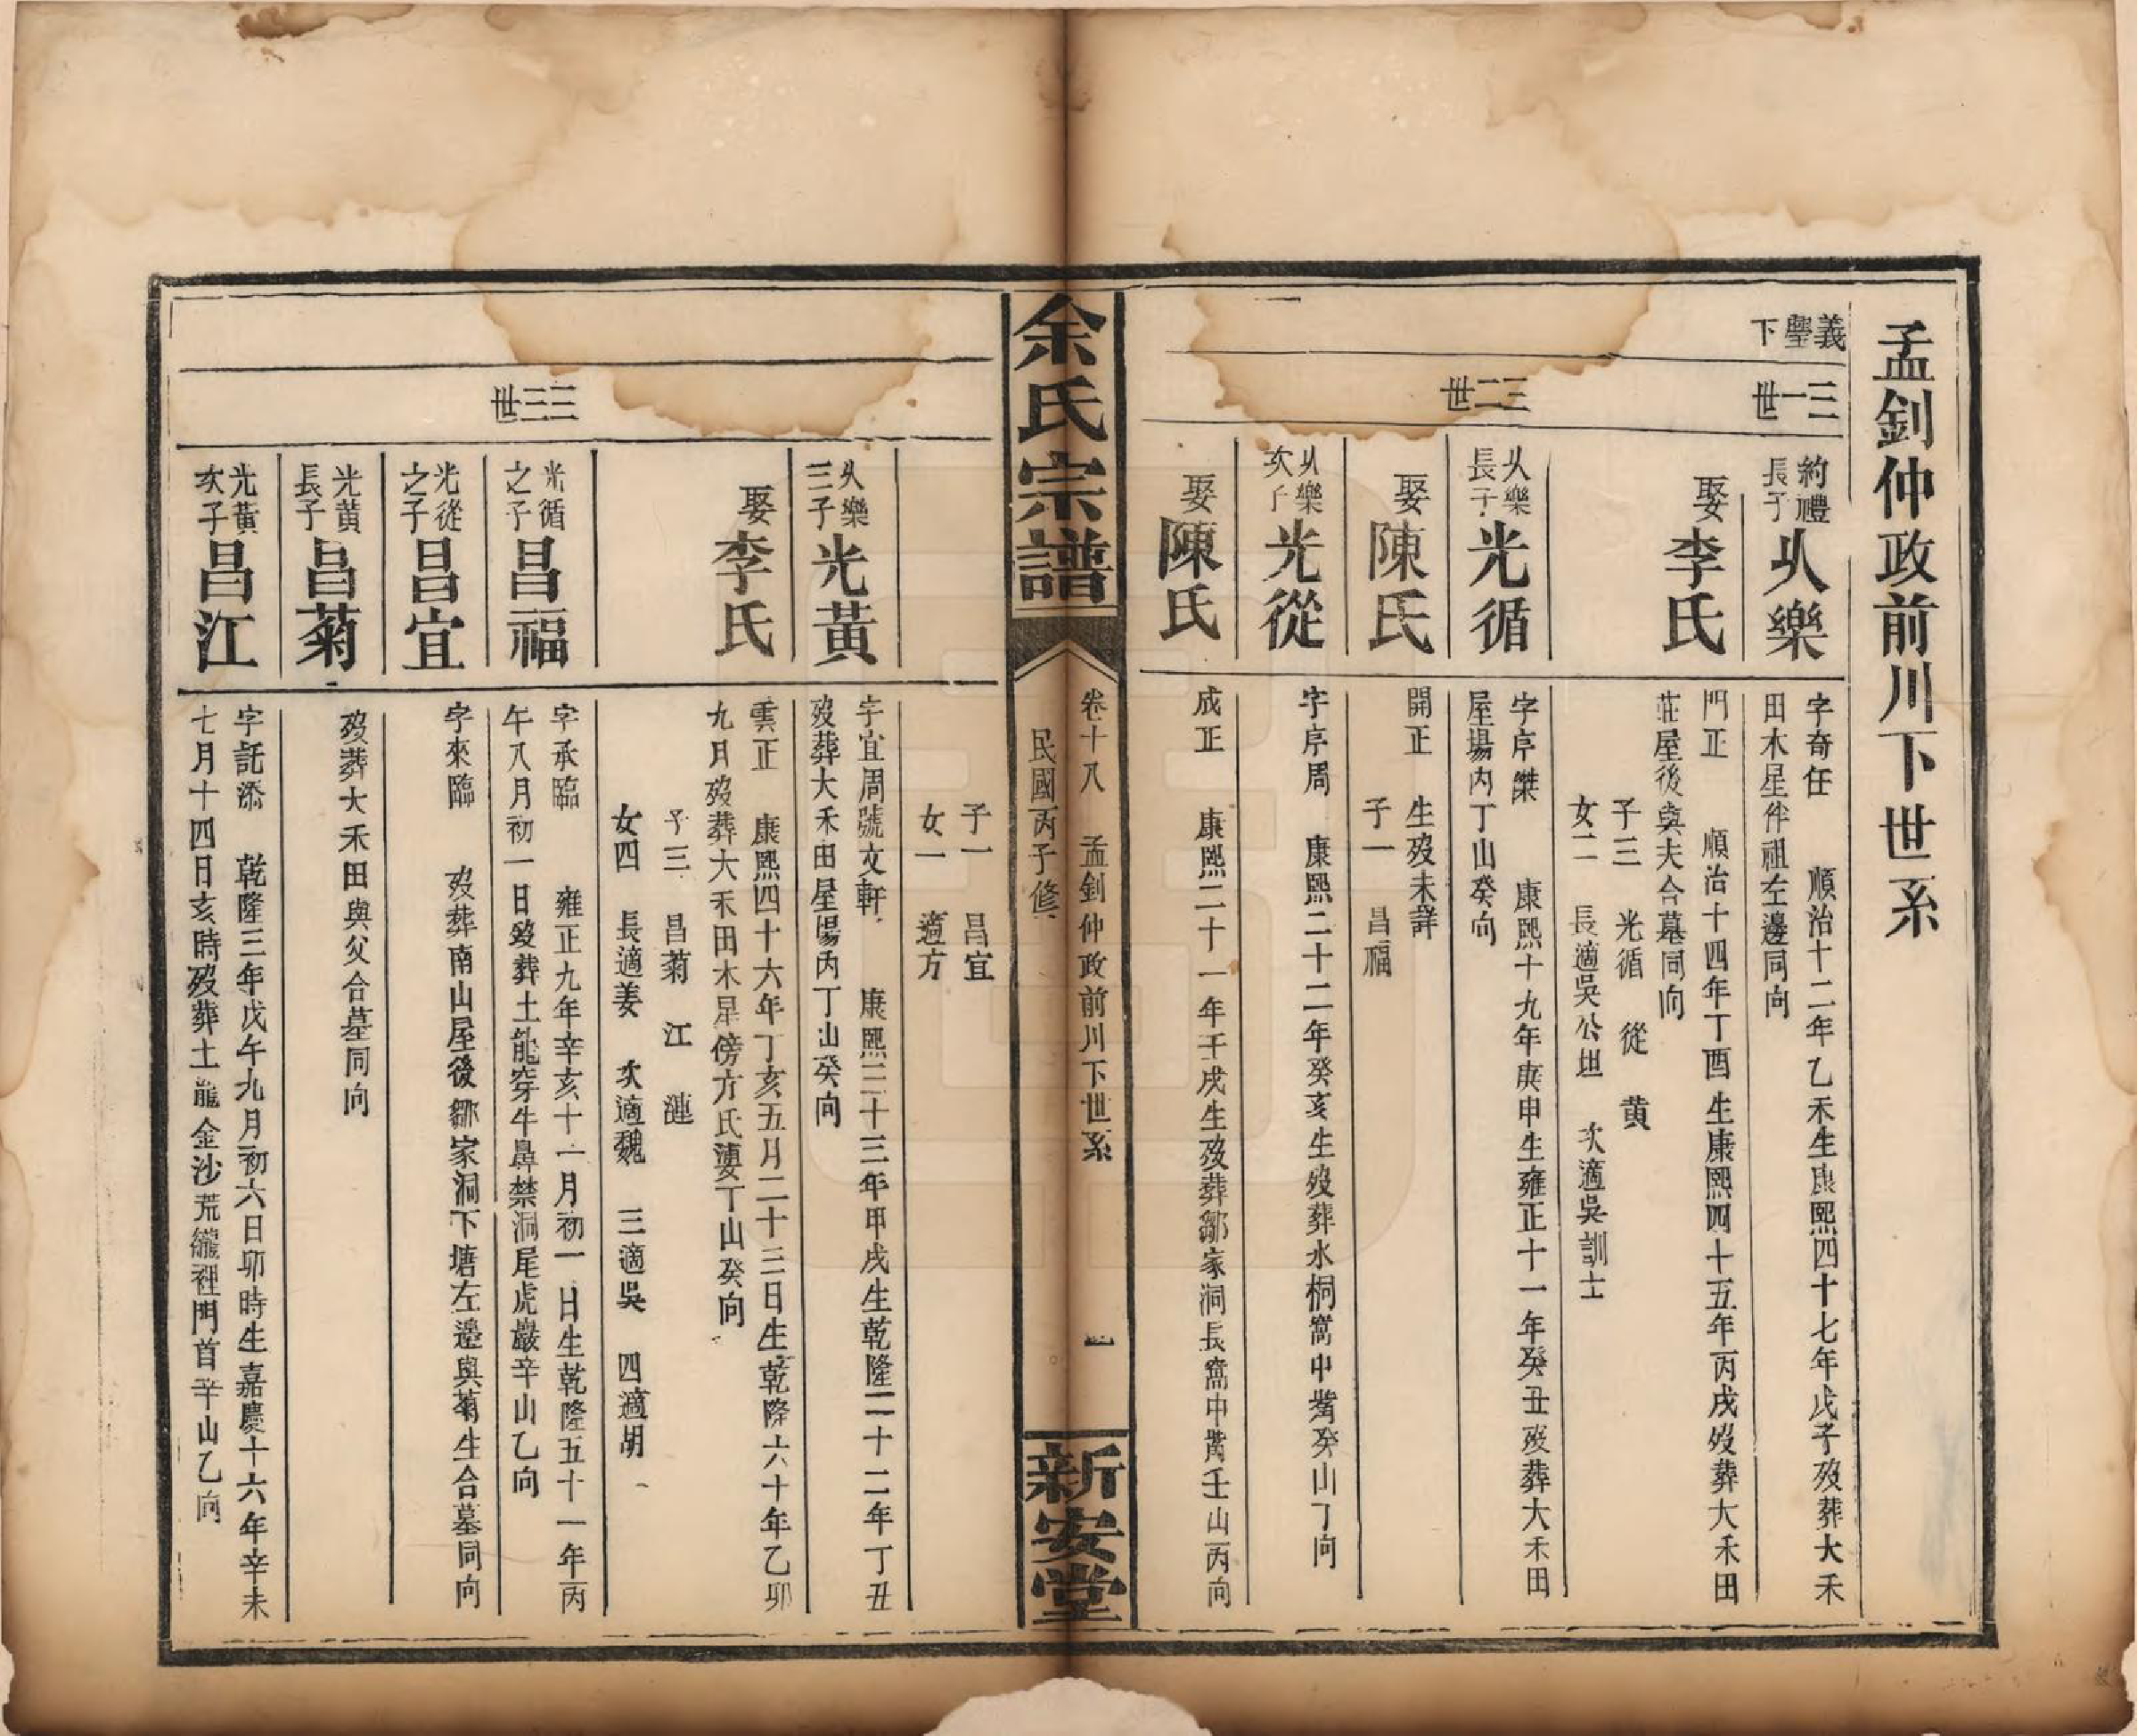 孟釗仲政前川下世系
義璺下
三一世
約禮長子
乆樂
字奇任 順治十二年乙禾生康熙四十七年戊子歿葬大禾
田木星伴祖左邊同向
娶李氏
門正 順治十四年丁酉生康熙四十五年丙戌歿葬大禾田
莊屋後與夫合墓同向
子三 光循 從 黄
女二 長適吳公坦 次適吳訓士
三二世
乆樂長子
光循
字序傑 康熙十九年庚申生雍正十一年癸丑歿葬大禾田
屋場内丁山癸向
娶陳氏
開正 生歿未詳
子一 昌福
乆樂次子
光從
字序周 康熙二十二年癸亥生歿葬水桐窩中嘴癸山丁向
娶陳氏
成正 康熙二十一年壬戌生歿葬鄒家洞長窩中嘴壬山丙向
余氏宗譜
卷十八 孟釗仲政前川下世系 一
民國丙子修
新安堂
子一 昌宜
女一 適方
乆樂三子
光黃
字宜周號文軒 康熙三十三年甲戌生乾隆二十二年丁丑
歿葬大禾田屋場丙丁山癸向
娶李氏
雲正 康熙四十六年丁亥五月二十三日生乾隆六十年乙卯
九月歿葬大禾田木星傍方氏塽丁山癸向
子三 昌菊 江 漣
女四 長適姜 次適魏 三適吳 四適胡
三三世
光循之子
昌福
字承臨 雍正九年辛亥十一月初一日生乾隆五十一年丙
午八月初一日歿葬土龍穿牛鼻禁洞尾虎巖辛山乙向
光從之子
昌宜
字來臨 歿葬南山屋後鄒家洞下塘左邊與菊生合墓同向
光黄長子
昌菊
歿葬大禾田與父合墓同向
光黃次子
昌江
字託添 乾隆三年戊午九月初六日卯時生嘉慶十六年辛未
七月十四日亥時歿葬土龍金沙荒 裡門首辛山乙向